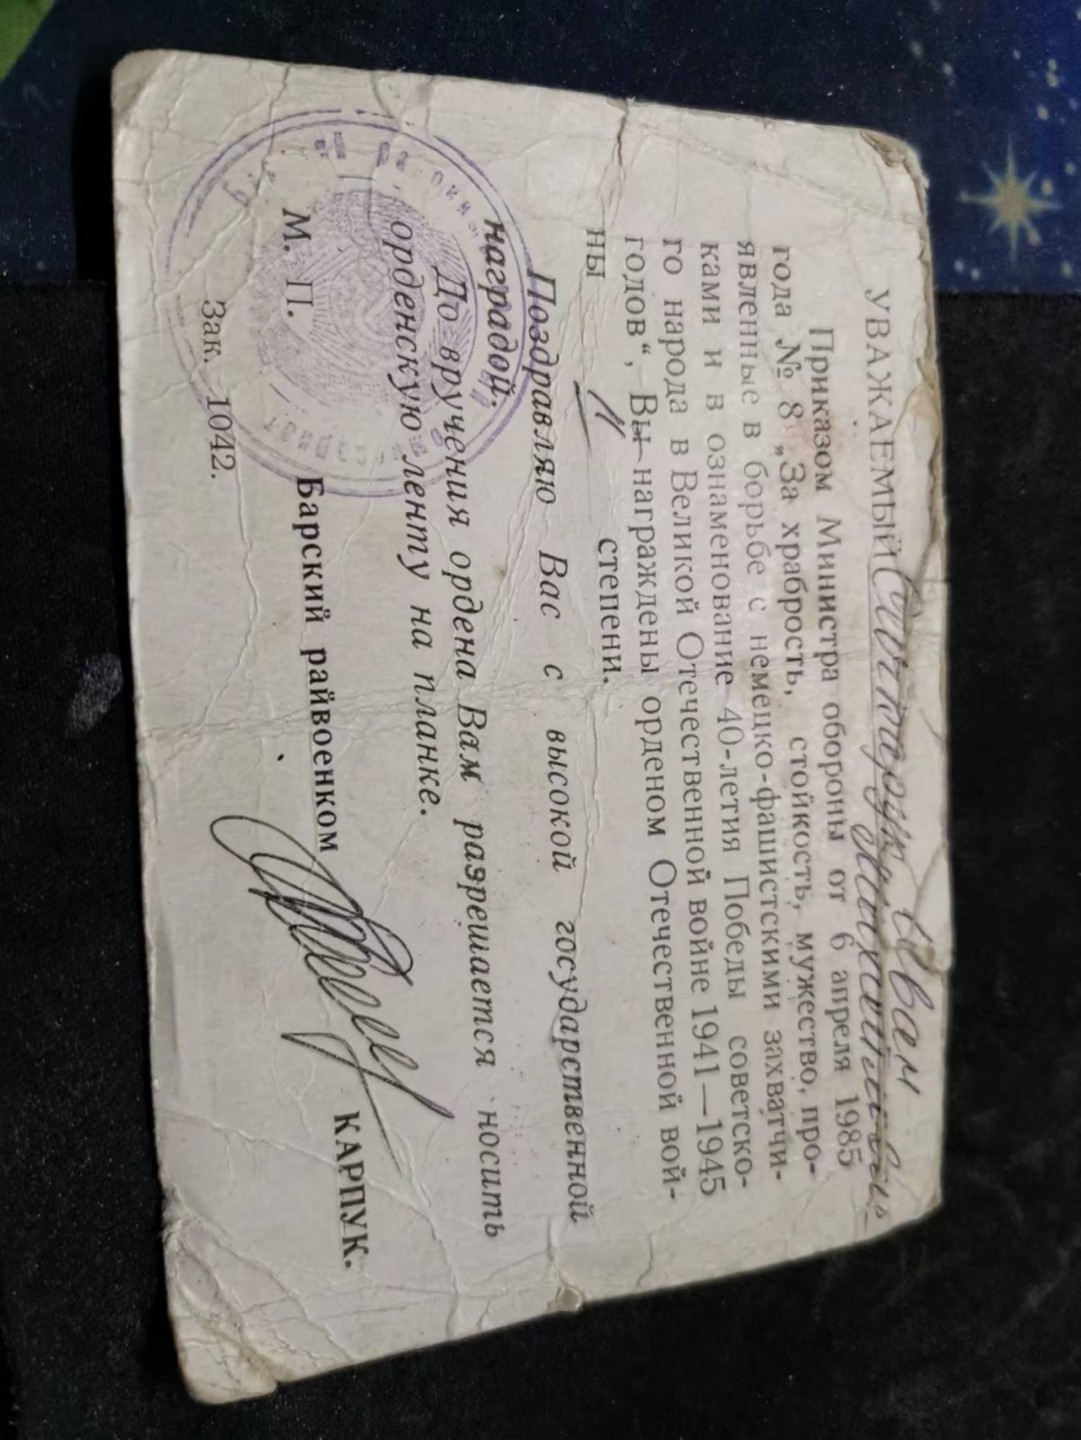 УВАЖАЕМЫЙ Иван
Приказом Министра обороны от 6 апреля 1985
года № 8 „За храбрость, стойкость, мужество, про-
явленные в борьбе с немецко-фашистскими захватчи-
ками и в ознаменование 40-летия Победы советско-
го народа в Великой Отечественной войне 1941—1945
годов“, Вы награждены орденом Отечественной вой-
ны II степени.
Поздравляю Вас с высокой государственной
наградой.
До вручения ордена Вам разрешается носить
орденскую ленту на планке.
М. П. Барский райвоенком КАРПУК.
Зак. 1042.